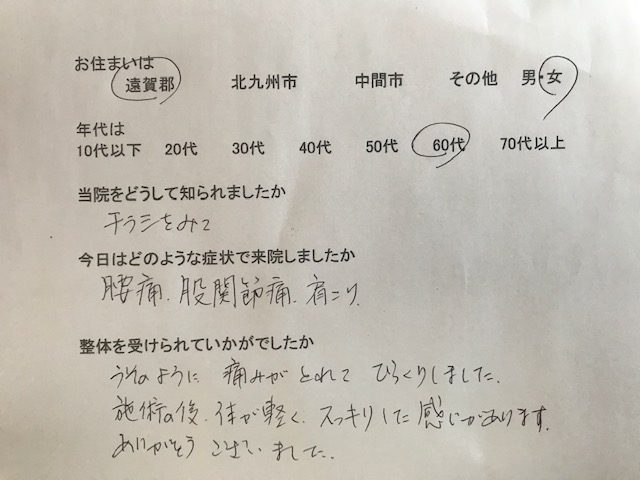 お住まいは
遠賀郡 北九州市 中間市 その他 男・女
年代は
10代以下 20代 30代 40代 50代 60代 70代以上
当院をどうして知られましたか
チラシをみて
今日はどのような症状で来院しましたか
腰痛、股関節痛、肩こり
整体を受けられていかがでしたか
うそのように 痛みが とれて びっくりしました。
施術の後、体が軽く、スッキリした感じがあります。
ありがとうございました。